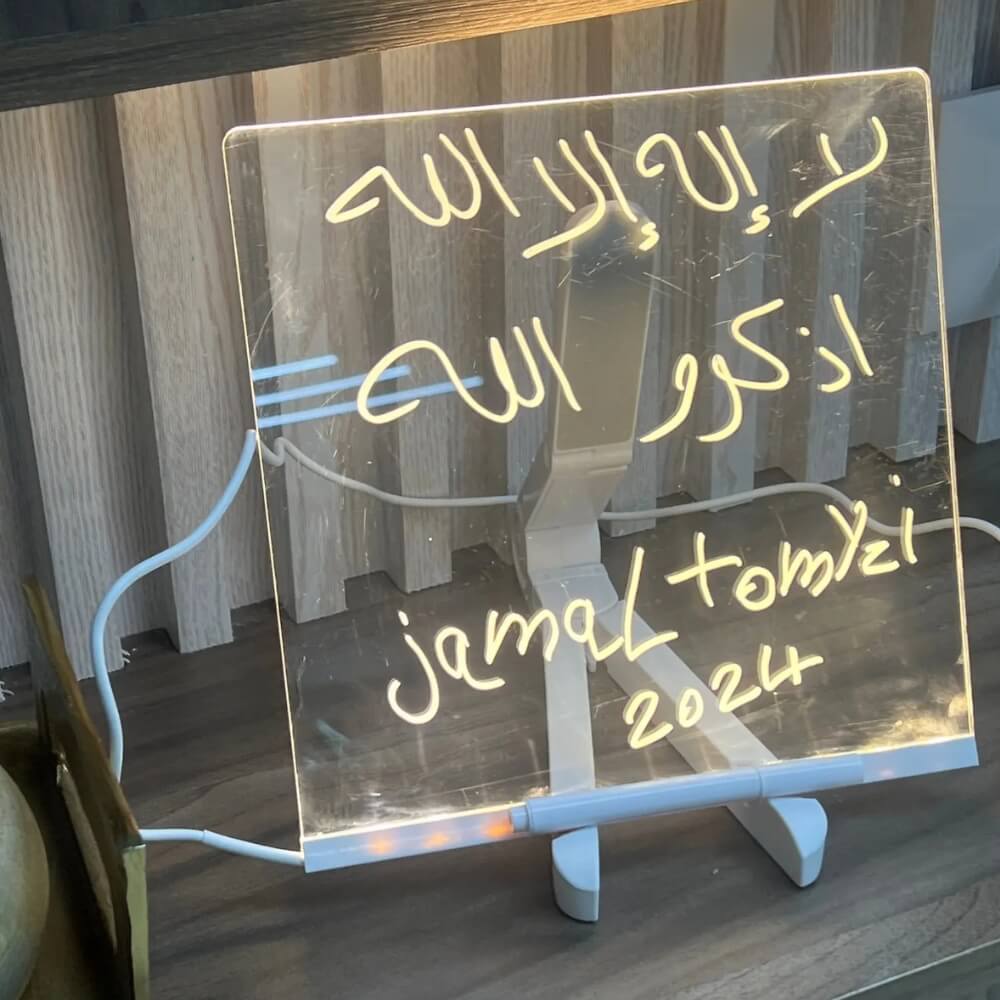 لا إله إلا الله
اذكرو الله
jamal tomyzi
2024